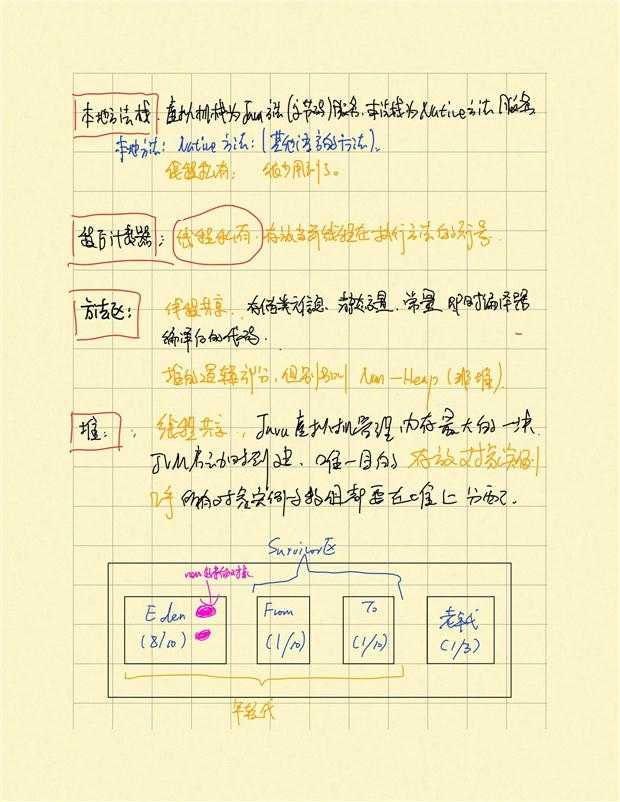 本地方法栈: 虚拟机栈为Java方法(字节码)服务,本法栈为Native方法服务
本地方法: Native方法: (其他语言的方法)。
线程私有: 很少用到了。
程序计数器: 线程私有, 存放当前线程在执行方法的行号.
方法区: 线程共享. 存储类元信息、静态变量、常量、即时编译器
编译后的代码.
堆的逻辑部分, 但别名叫 Non-Heap (非堆)
堆: 线程共享, Java虚拟机管理内存最大的一块.
JVM启动时创建, 唯一目的存放对象实例
几乎所有对象实例与数组都要在堆上分配.
Survivor区
new出来的对象
Eden From To 老年代
(8/10) (1/10) (1/10) (1/3)
年轻代